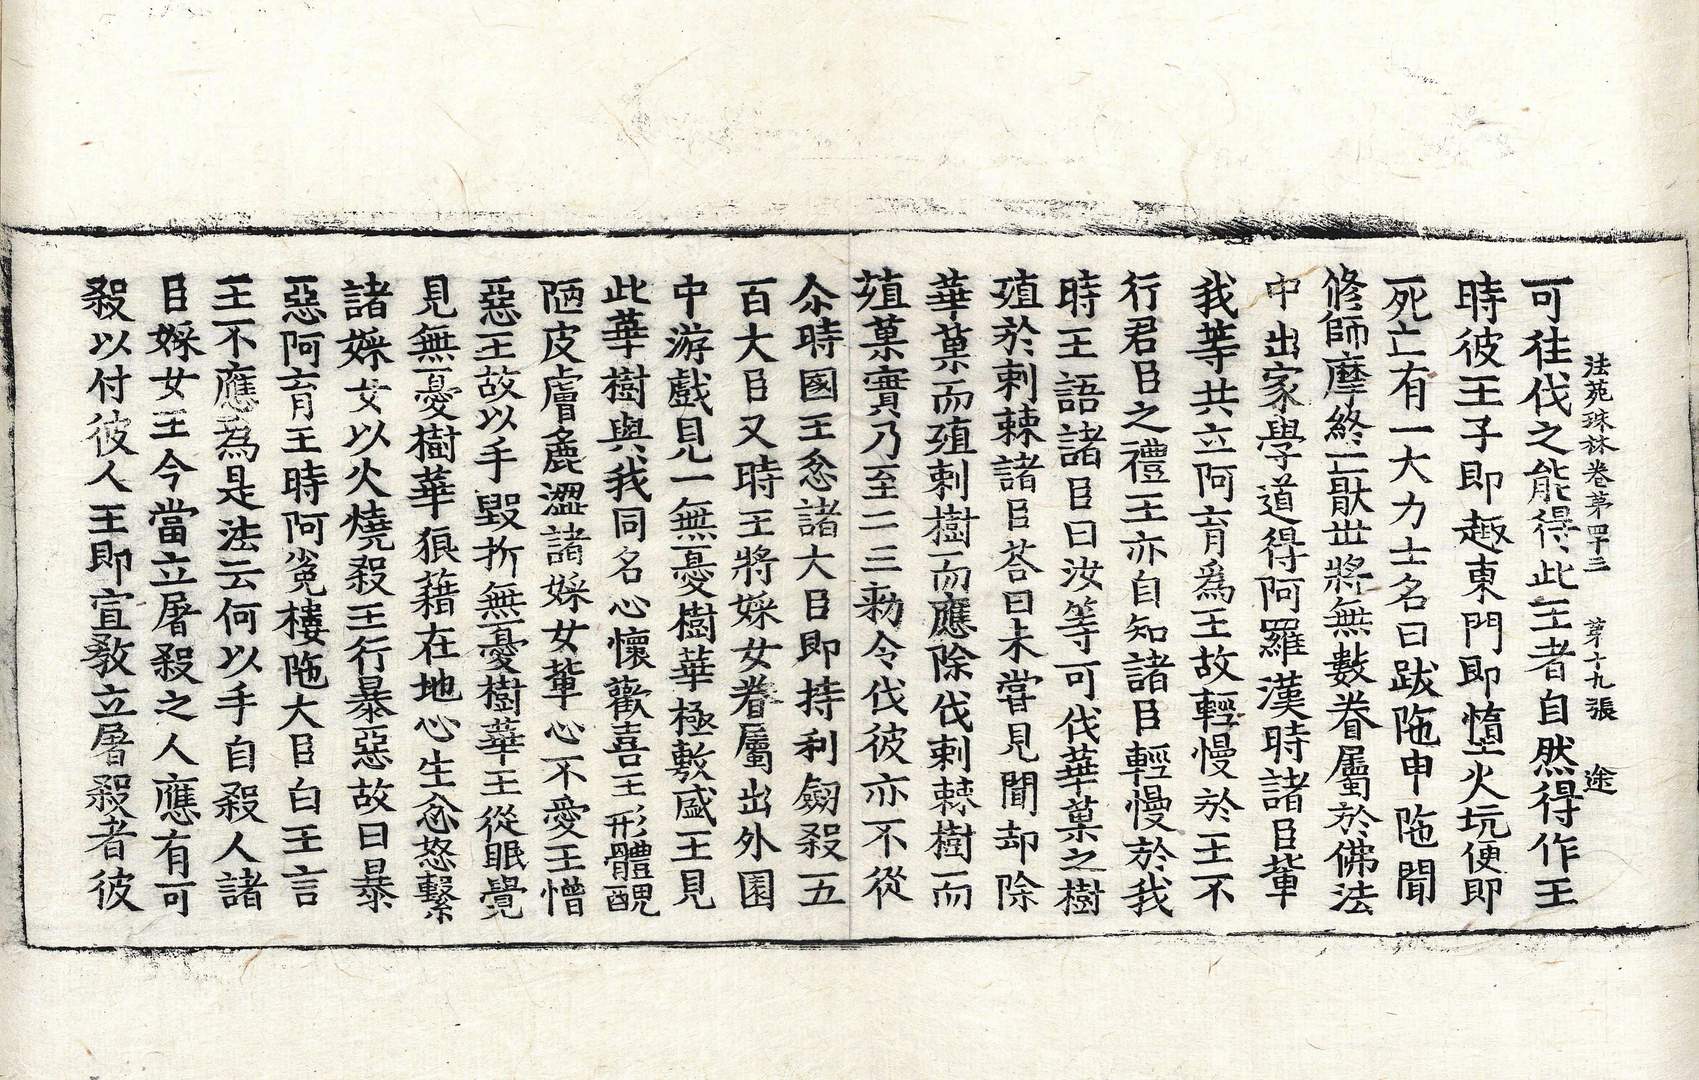 法苑珠林卷第四十三　第十九張　途
可往伐之能得此王者自然得作王
時彼王子即趣東門即墮火坑便即
死亡有一大力士名曰跋陁申陁聞
修師摩終亡猒世將無數眷屬於佛法
中出家學道得阿羅漢時諸臣輩
我等共立阿育爲王故輕慢於王不
行君臣之禮王亦自知諸臣輕慢於我
時王語諸臣曰汝等可伐華菓之樹
殖於刺棘諸臣荅曰未嘗見聞却除
華菓而殖刺樹而應除伐刺棘樹而
殖菓實乃至二三勑令伐彼亦不從
尒時國王忿諸大臣即持利劒殺五
百大臣又時王將婇女眷屬出外園
中游戲見一無憂樹華極敷盛王見
此華樹與我同名心懷歡喜王形體醜
陋皮膚麁澀諸婇女輩心不愛王憎
惡王故以手毀折無憂樹華王從眠覺
見無憂樹華狼藉在地心生忿怒繫
諸婇女以火燒殺王行暴惡故曰暴
惡阿育王時阿㝹樓陁大臣白王言
王不應爲是法云何以手自殺人諸
臣婇女王今當立屠殺之人應有可
殺以付彼人王即宣教立屠殺者彼